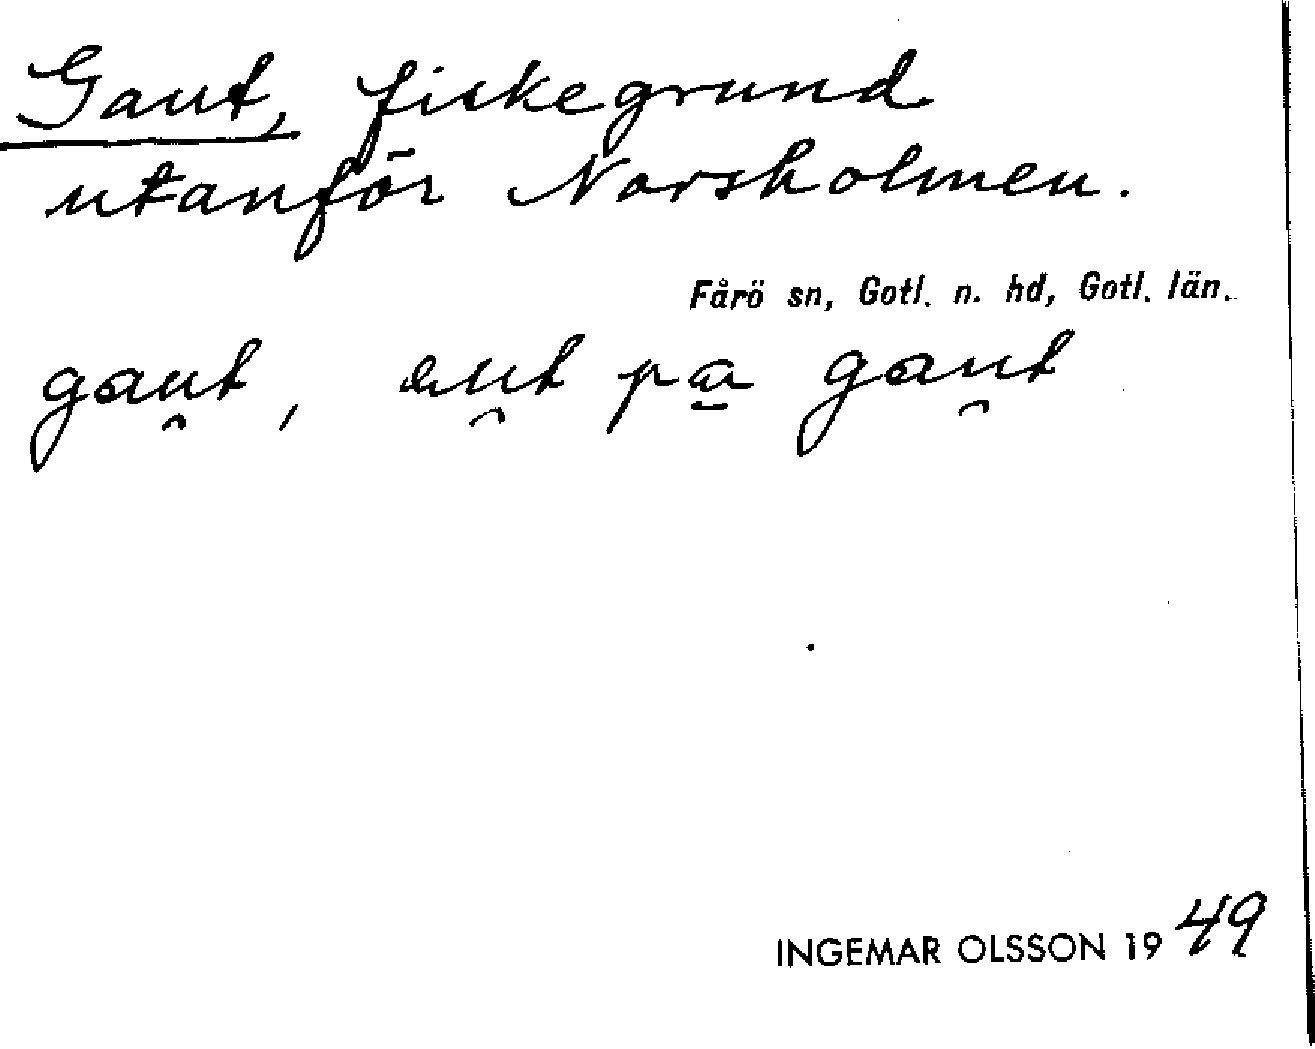 Gaut, fiskegrund
utanför Norsholmen.
Fårö sn, Gotl. n. hd, Gotl. län.
gau̯t, au̯t pa̱ gau̯t
INGEMAR OLSSON 1949